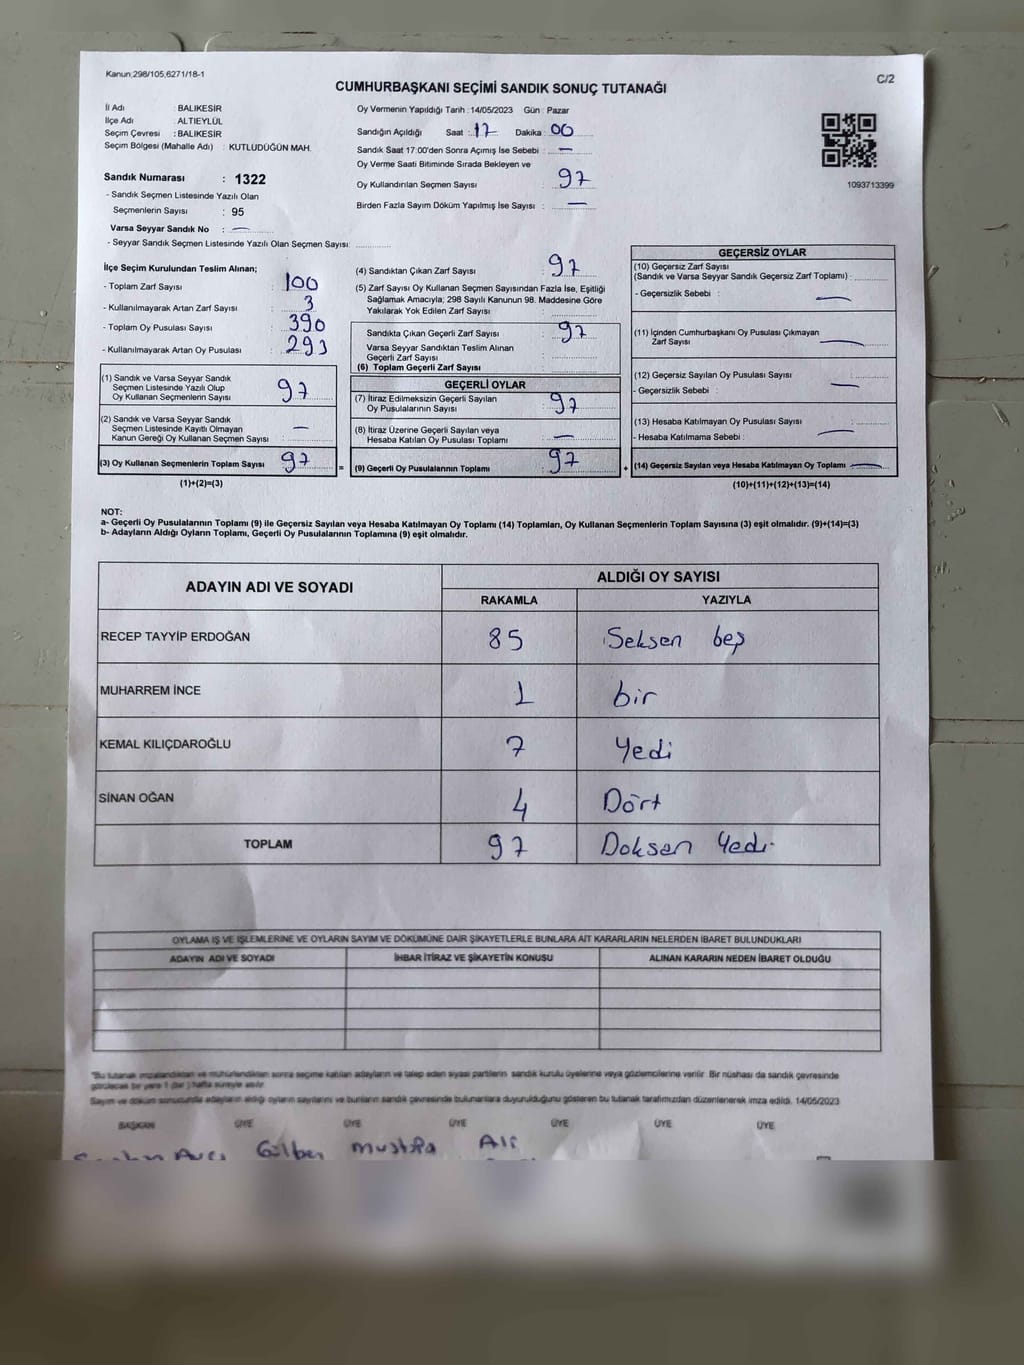 Kanun,298/105,6271/18-1
C/2
CUMHURBAŞKANI SEÇİMİ SANDIK SONUÇ TUTANAĞI
İl Adı : BALIKESİR
İlçe Adı : ALTIEYLÜL
Seçim Çevresi : BALIKESİR
Seçim Bölgesi (Mahalle Adı) : KUTLUDÜĞÜN MAH.
Sandık Numarası : 1322
- Sandık Seçmen Listesinde Yazılı Olan
Seçmenlerin Sayısı : 95
Varsa Seyyar Sandık No : —
- Seyyar Sandık Seçmen Listesinde Yazılı Olan Seçmen Sayısı:
Oy Vermenin Yapıldığı Tarih :14/05/2023 Gün : Pazar
Sandığın Açıldığı Saat : 17 Dakika : 00
Sandık Saat 17:00'den Sonra Açımış İse Sebebi : —
Oy Verme Saati Bitiminde Sırada Bekleyen ve
Oy Kullandırılan Seçmen Sayısı : 97
Birden Fazla Sayım Döküm Yapılmış İse Sayısı : —
1093713399
İlçe Seçim Kurulundan Teslim Alınan;
- Toplam Zarf Sayısı : 100
- Kullanılmayarak Artan Zarf Sayısı : 3
- Toplam Oy Pusulası Sayısı : 390
- Kullanılmayarak Artan Oy Pusulası : 293
(1) Sandık ve Varsa Seyyar Sandık
Seçmen Listesinde Yazılı Olup
Oy Kullanan Seçmenlerin Sayısı : 97
(2) Sandık ve Varsa Seyyar Sandık
Seçmen Listesinde Kayıtlı Olmayan
Kanun Gereği Oy Kullanan Seçmen Sayısı : —
(3) Oy Kullanan Seçmenlerin Toplam Sayısı : 97
(1)+(2)=(3)
(4) Sandıktan Çıkan Zarf Sayısı : 97
(5) Zarf Sayısı Oy Kullanan Seçmen Sayısından Fazla İse, Eşitliği
Sağlamak Amacıyla; 298 Sayılı Kanunun 98. Maddesine Göre
Yakılarak Yok Edilen Zarf Sayısı :
Sandıkta Çıkan Geçerli Zarf Sayısı : 97
Varsa Seyyar Sandıktan Teslim Alınan
Geçerli Zarf Sayısı :
(6) Toplam Geçerli Zarf Sayısı :
GEÇERLİ OYLAR
(7) İtiraz Edilmeksizin Geçerli Sayılan
Oy Pusulalarının Sayısı : 97
(8) İtiraz Üzerine Geçerli Sayılan veya
Hesaba Katılan Oy Pusulası Toplamı : —
= (9) Geçerli Oy Pusulalarının Toplamı : 97
GEÇERSİZ OYLAR
(10) Geçersiz Zarf Sayısı
(Sandık ve Varsa Seyyar Sandık Geçersiz Zarf Toplamı) :
- Geçersizlik Sebebi : —
(11) İçinden Cumhurbaşkanı Oy Pusulası Çıkmayan
Zarf Sayısı : —
(12) Geçersiz Sayılan Oy Pusulası Sayısı :
- Geçersizlik Sebebi : —
(13) Hesaba Katılmayan Oy Pusulası Sayısı :
- Hesaba Katılmama Sebebi : —
+ (14) Geçersiz Sayılan veya Hesaba Katılmayan Oy Toplamı : —
(10)+(11)+(12)+(13)=(14)
NOT:
a- Geçerli Oy Pusulalarının Toplamı (9) ile Geçersiz Sayılan veya Hesaba Katılmayan Oy Toplamı (14) Toplamları, Oy Kullanan Seçmenlerin Toplam Sayısına (3) eşit olmalıdır. (9)+(14)=(3)
b- Adayların Aldığı Oyların Toplamı, Geçerli Oy Pusulalarının Toplamına (9) eşit olmalıdır.
ADAYIN ADI VE SOYADI
ALDIĞI OY SAYISI
RAKAMLA YAZIYLA
RECEP TAYYİP ERDOĞAN 85 Seksen beş
MUHARREM İNCE 1 bir
KEMAL KILIÇDAROĞLU 7 Yedi
SİNAN OĞAN 4 Dört
TOPLAM 97 Doksan Yedi
OYLAMA İŞ VE İŞLEMLERİNE VE OYLARIN SAYIM VE DÖKÜMÜNE DAİR ŞİKAYETLERLE BUNLARA AİT KARARLARIN NELERDEN İBARET BULUNDUKLARI
ADAYIN ADI VE SOYADI İHBAR İTİRAZ VE ŞİKAYETİN KONUSU ALINAN KARARIN NEDEN İBARET OLDUĞU
"Bu tutanak imzalandıktan ve mühürlendikten sonra seçime katılan adayların ve talep eden siyasi partilerin sandık kurulu üyelerine veya gözlemcilerine verilir. Bir nüshası da sandık çevresinde
görülecek bir yere 1 (bir) hafta süreyle asılır.
Sayım ve döküm sonucunda adayların aldığı oyların sayılarını ve bunların sandık çevresinde bulunanlara duyurulduğunu gösteren bu tutanak tarafımızdan düzenlenerek imza edildi. 14/05/2023
BAŞKAN ÜYE ÜYE ÜYE ÜYE ÜYE ÜYE
Mustafa Ali